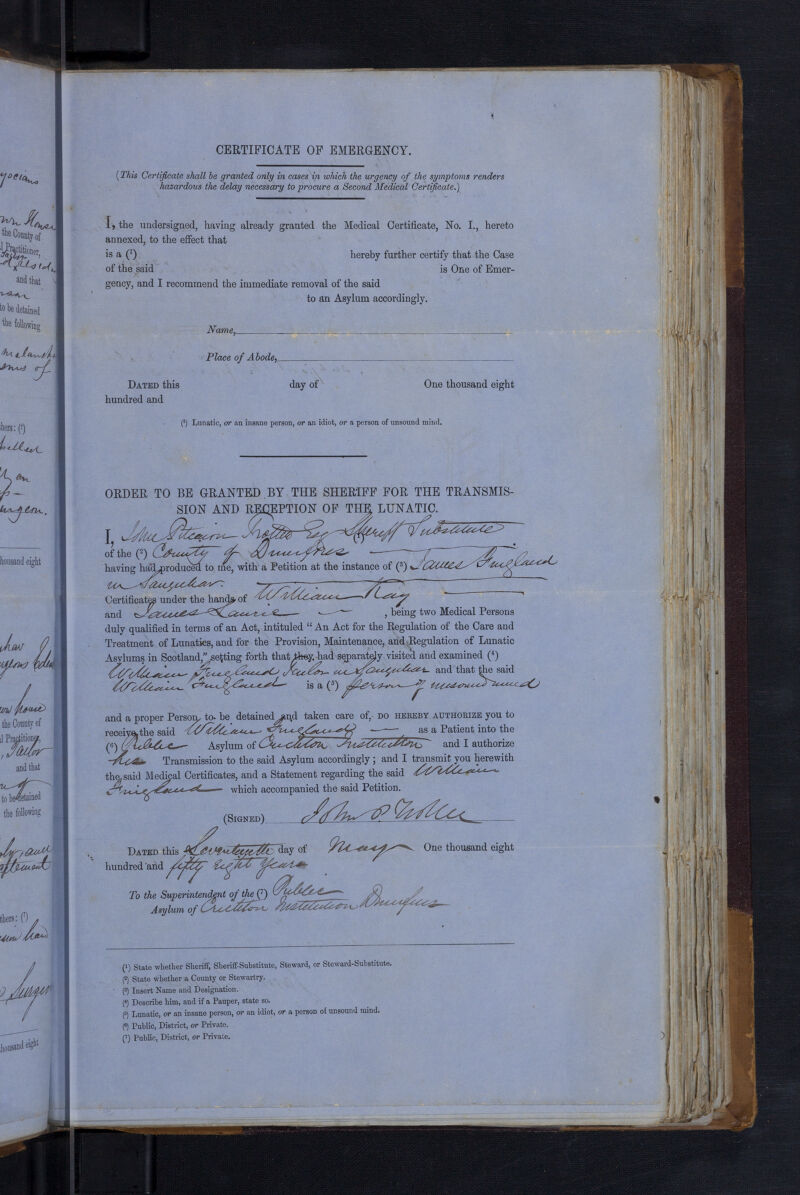 CERTIFICATE OF EMERGENCY.
(This Certificate shall be granted only in cases in which the urgency of the symptoms renders
hazardous the delay necessary to procure a Second Medical Certificate.)
I, the undersigned, having already granted the Medical Certificate, No. I., hereto
annexed, to the effect that
is a (¹) hereby further certify that the Case
of the said is One of Emer-
gency, and I recommend the immediate removal of the said
to an Asylum accordingly.
Name,
Place of Abode,
DATED this day of One thousand eight
hundred and
(¹) Lunatic, or an insane person, or an idiot, or a person of unsound mind.
ORDER TO BE GRANTED BY THE SHERIFF FOR THE TRANSMIS-
SION AND RECEPTION OF THE LUNATIC.
I, John Pitcairn Trotter Esq Sheriff Substitute
of the (²) County of Dumfries
having had produced to me, with a Petition at the instance of (³) James Fingland
in Sanquhar.
Certificates under the hands of William Kay
and James Laurie , being two Medical Persons
duly qualified in terms of an Act, intituled “An Act for the Regulation of the Care and
Treatment of Lunatics, and for the Provision, Maintenance, and Regulation of Lunatic
Asylums in Scotland,” setting forth that they had separately visited and examined (⁴)
William Fingland Tailor in Sanquhar and that the said
William Fingland is a (⁵) person of unsound mind
and a proper Person to be detained and taken care of, DO HEREBY AUTHORIZE you to
receive the said William Fingland as a Patient into the
(⁶) Public Asylum of Crichton Institution and I authorize
his Transmission to the said Asylum accordingly; and I transmit you herewith
the said Medical Certificates, and a Statement regarding the said William
Fingland which accompanied the said Petition.
(SIGNED) John P. Trotter
DATED this Seventeenth day of May One thousand eight
hundred and fifty eight years
To the Superintendent of the (⁷) Public
Asylum of Crichton Institution Dumfries
(¹) State whether Sheriff, Sheriff-Substitute, Steward, or Steward-Substitute.
(²) State whether a County or Stewartry.
(³) Insert Name and Designation.
(⁴) Describe him, and if a Pauper, state so.
(⁵) Lunatic, or an insane person, or an idiot, or a person of unsound mind.
(⁶) Public, District, or Private.
(⁷) Public, District, or Private.
the County of
Practitioner,
and that
to be detained
the following
hers: (¹)
housand eight
the County of
Practitioner,
Tailor
and that
to be detained
the following
thers: (¹)
housand eight